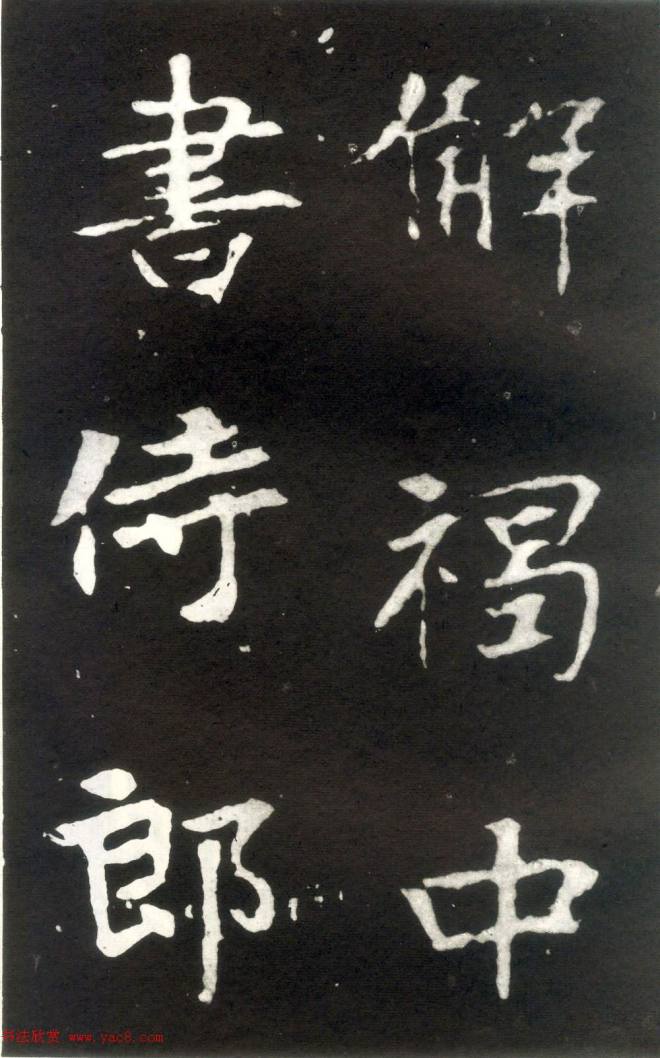 解褐中
書侍郎
书法欣赏 www.yac8.com